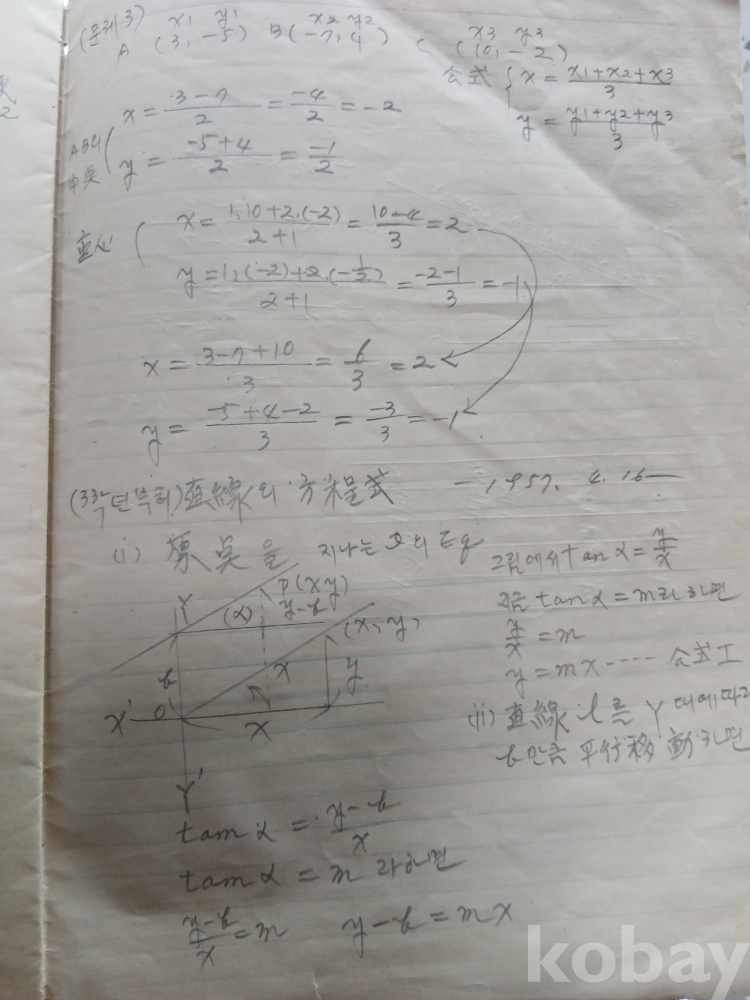 (문제 3) x1 y1 x2 y2 x3 y3
A (3, -5) B(-7, 4) C (10, -2)
公式 { x = (x1+x2+x3)/3
y = (y1+y2+y3)/3
AB의 中点
x = (3-7)/2 = -4/2 = -2
y = (-5+4)/2 = -1/2
重心
x = (1.10+2.(-2))/(2+1) = (10-4)/3 = 2
y = (1.(-2)+2.(-1/2))/(2+1) = (-2-1)/3 = -1
x = (3-7+10)/3 = 6/3 = 2
y = (-5+4-2)/3 = -3/3 = -1
(3학년부터) 直線의 方程式 - 1957. 4. 16 -
(i) 原点을 지나는 의 Eq
Y P(x y)
(α) y-b
(x, y)
b x y
X' O x
Y'
그림에서 tan α = y/x
지금 tan α = m라 하면
y/x = m
y = mx ---- 公式 I
(ii) 直線 l를 Y 따라
b만큼 平行移動하면
tan α = (y-b)/x
tan α = m 라하면
(y-b)/x = m y-b = mx
kobay